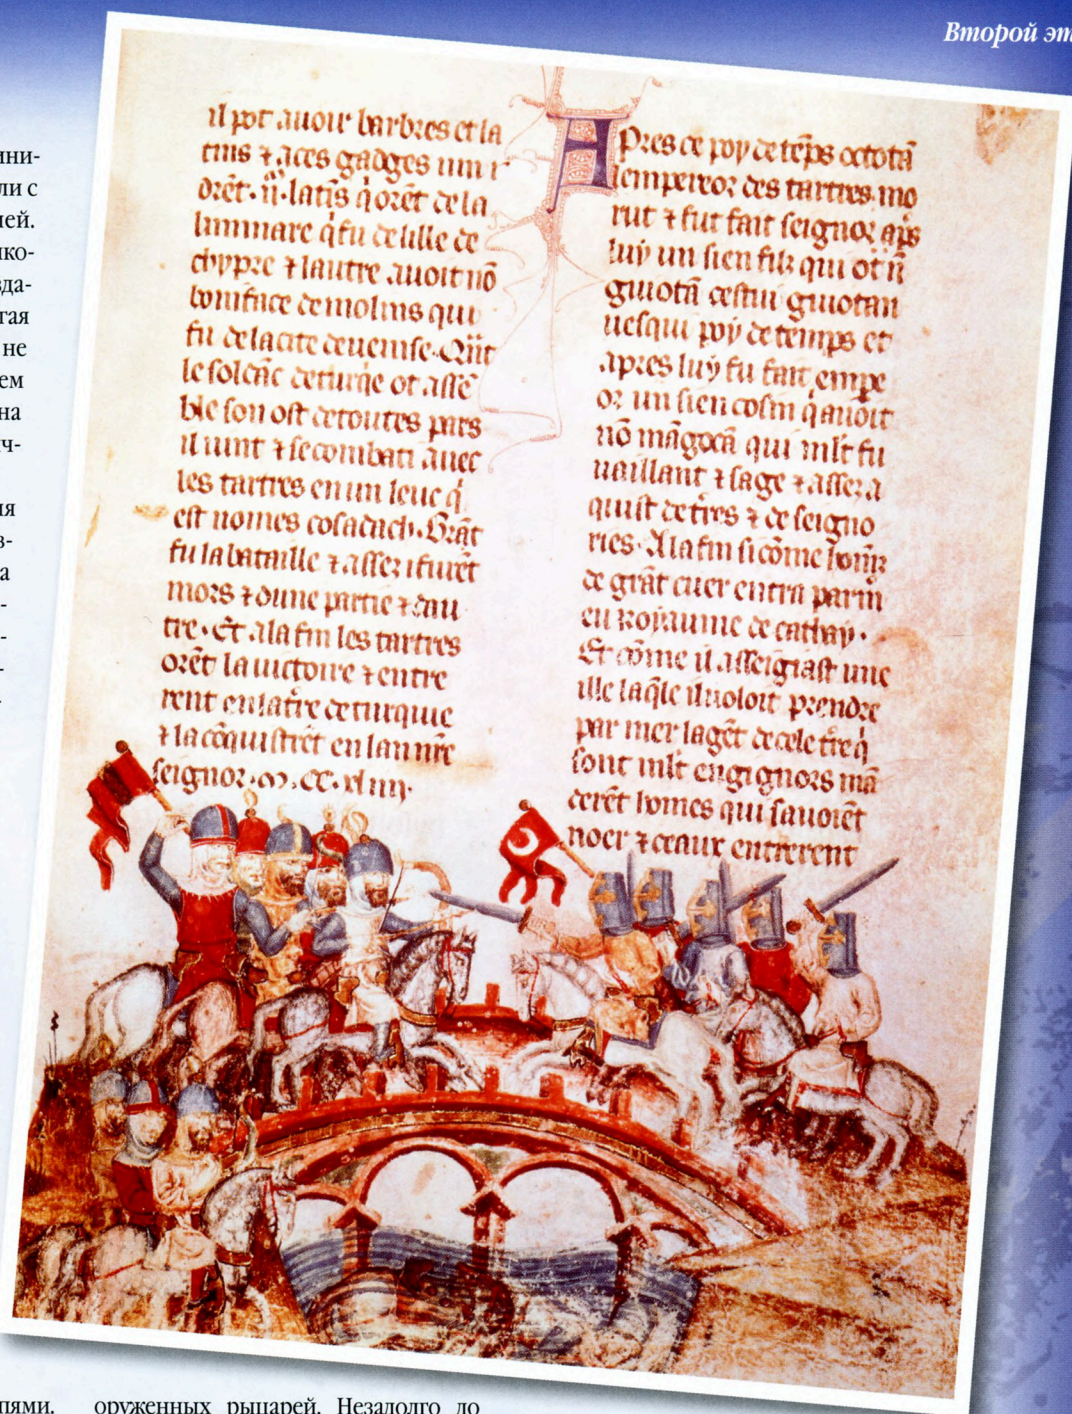 Второй эт
ини-
ли с
лей.
ко-
зда-
гая
не
ем
на
ич-
ия
з-
а
il pot auoir barbres et la
tins ⁊ aces gadges uin r
drēt. ii. latīs q̇ orēt de la
liminare q̇ fu de lille de
chypre ⁊ lautre auoit nō
boniface de molins qui
fu de la cite de uenise. Qūt
le soldāc de turq̇e ot assē
ble son ost de toutes pars
il uint ⁊ se combati auec
les tartres en un leuc q̇
est nomes cosadach. Grāt
fu la bataille ⁊ assez i furēt
mors ⁊ dune partie ⁊ dau
tre. Et a la fin les tartres
orēt la uictoire ⁊ entre
rent en la tr̄e de turquie
⁊ la cōquistrēt en lan nr̄e
seignor. m. cc. xl iiii.
APres ce poy de tēps octotā
lempereor des tartres mo
rut ⁊ fut fait seignor ap̄s
luy un sien filz qui ot nō
guiotā cestui guiotan
uesqui poy de temps et
apres luy fu fait empe
or un sien cosin q̇ auoit
nō māgocā qui mlt fu
uaillant ⁊ sage ⁊ assez a
quist de tr̄es ⁊ de seigno
ries. A la fin si cōme
de grāt cuer entra parmi
eu royaume de cathay.
Et cōme il asseigiast une
ille laq̄le il uoloit prendre
par mer la gēt de cele tr̄e q̇
sont mlt engignors mā
derēt homes qui sauoiēt
noer ⁊ ceaux entrerent
пями.
оруженных рыцарей. Незадолго до